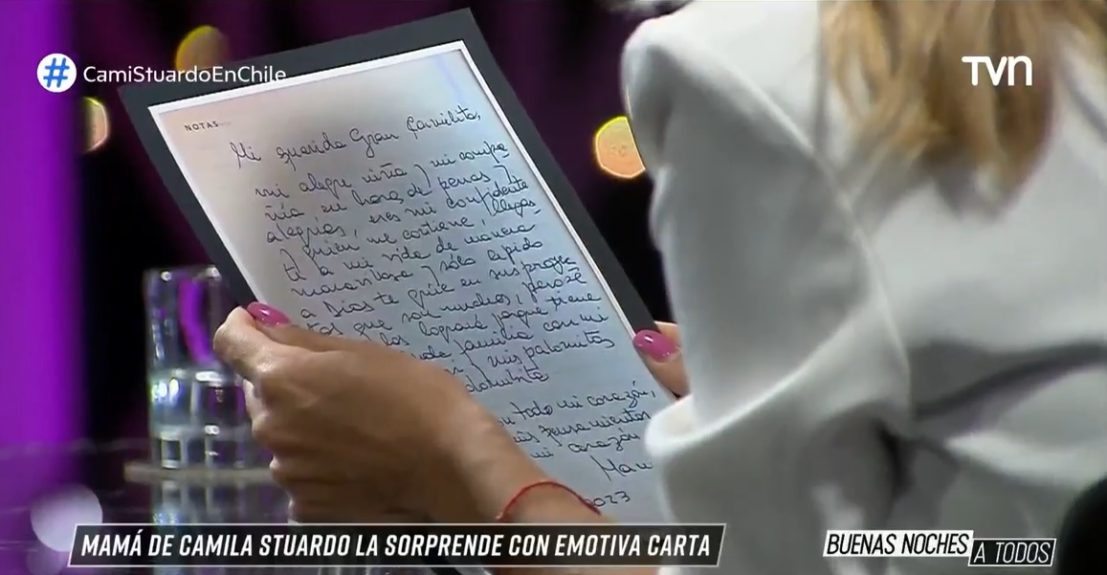 # CamiStuardoEnChile
TVN
NOTAS
Mi querida Gran Camilita,
mi alegre niña y mi compa
ñia en horas de penas y
alegrías, eres mi confidente
y quien me contiene, llegas
te a mi vida de manera
maravillosa y sólo le pido
a Dios te guíe en sus proyec
tos que son muchos, pero sé
los lograrás porque tiene
familia con mi
mis palomitos
todo mi corazón,
mis pensamientos
mi corazón
Mam
2023
MAMÁ DE CAMILA STUARDO LA SORPRENDE CON EMOTIVA CARTA
BUENAS NOCHES
A TODOS